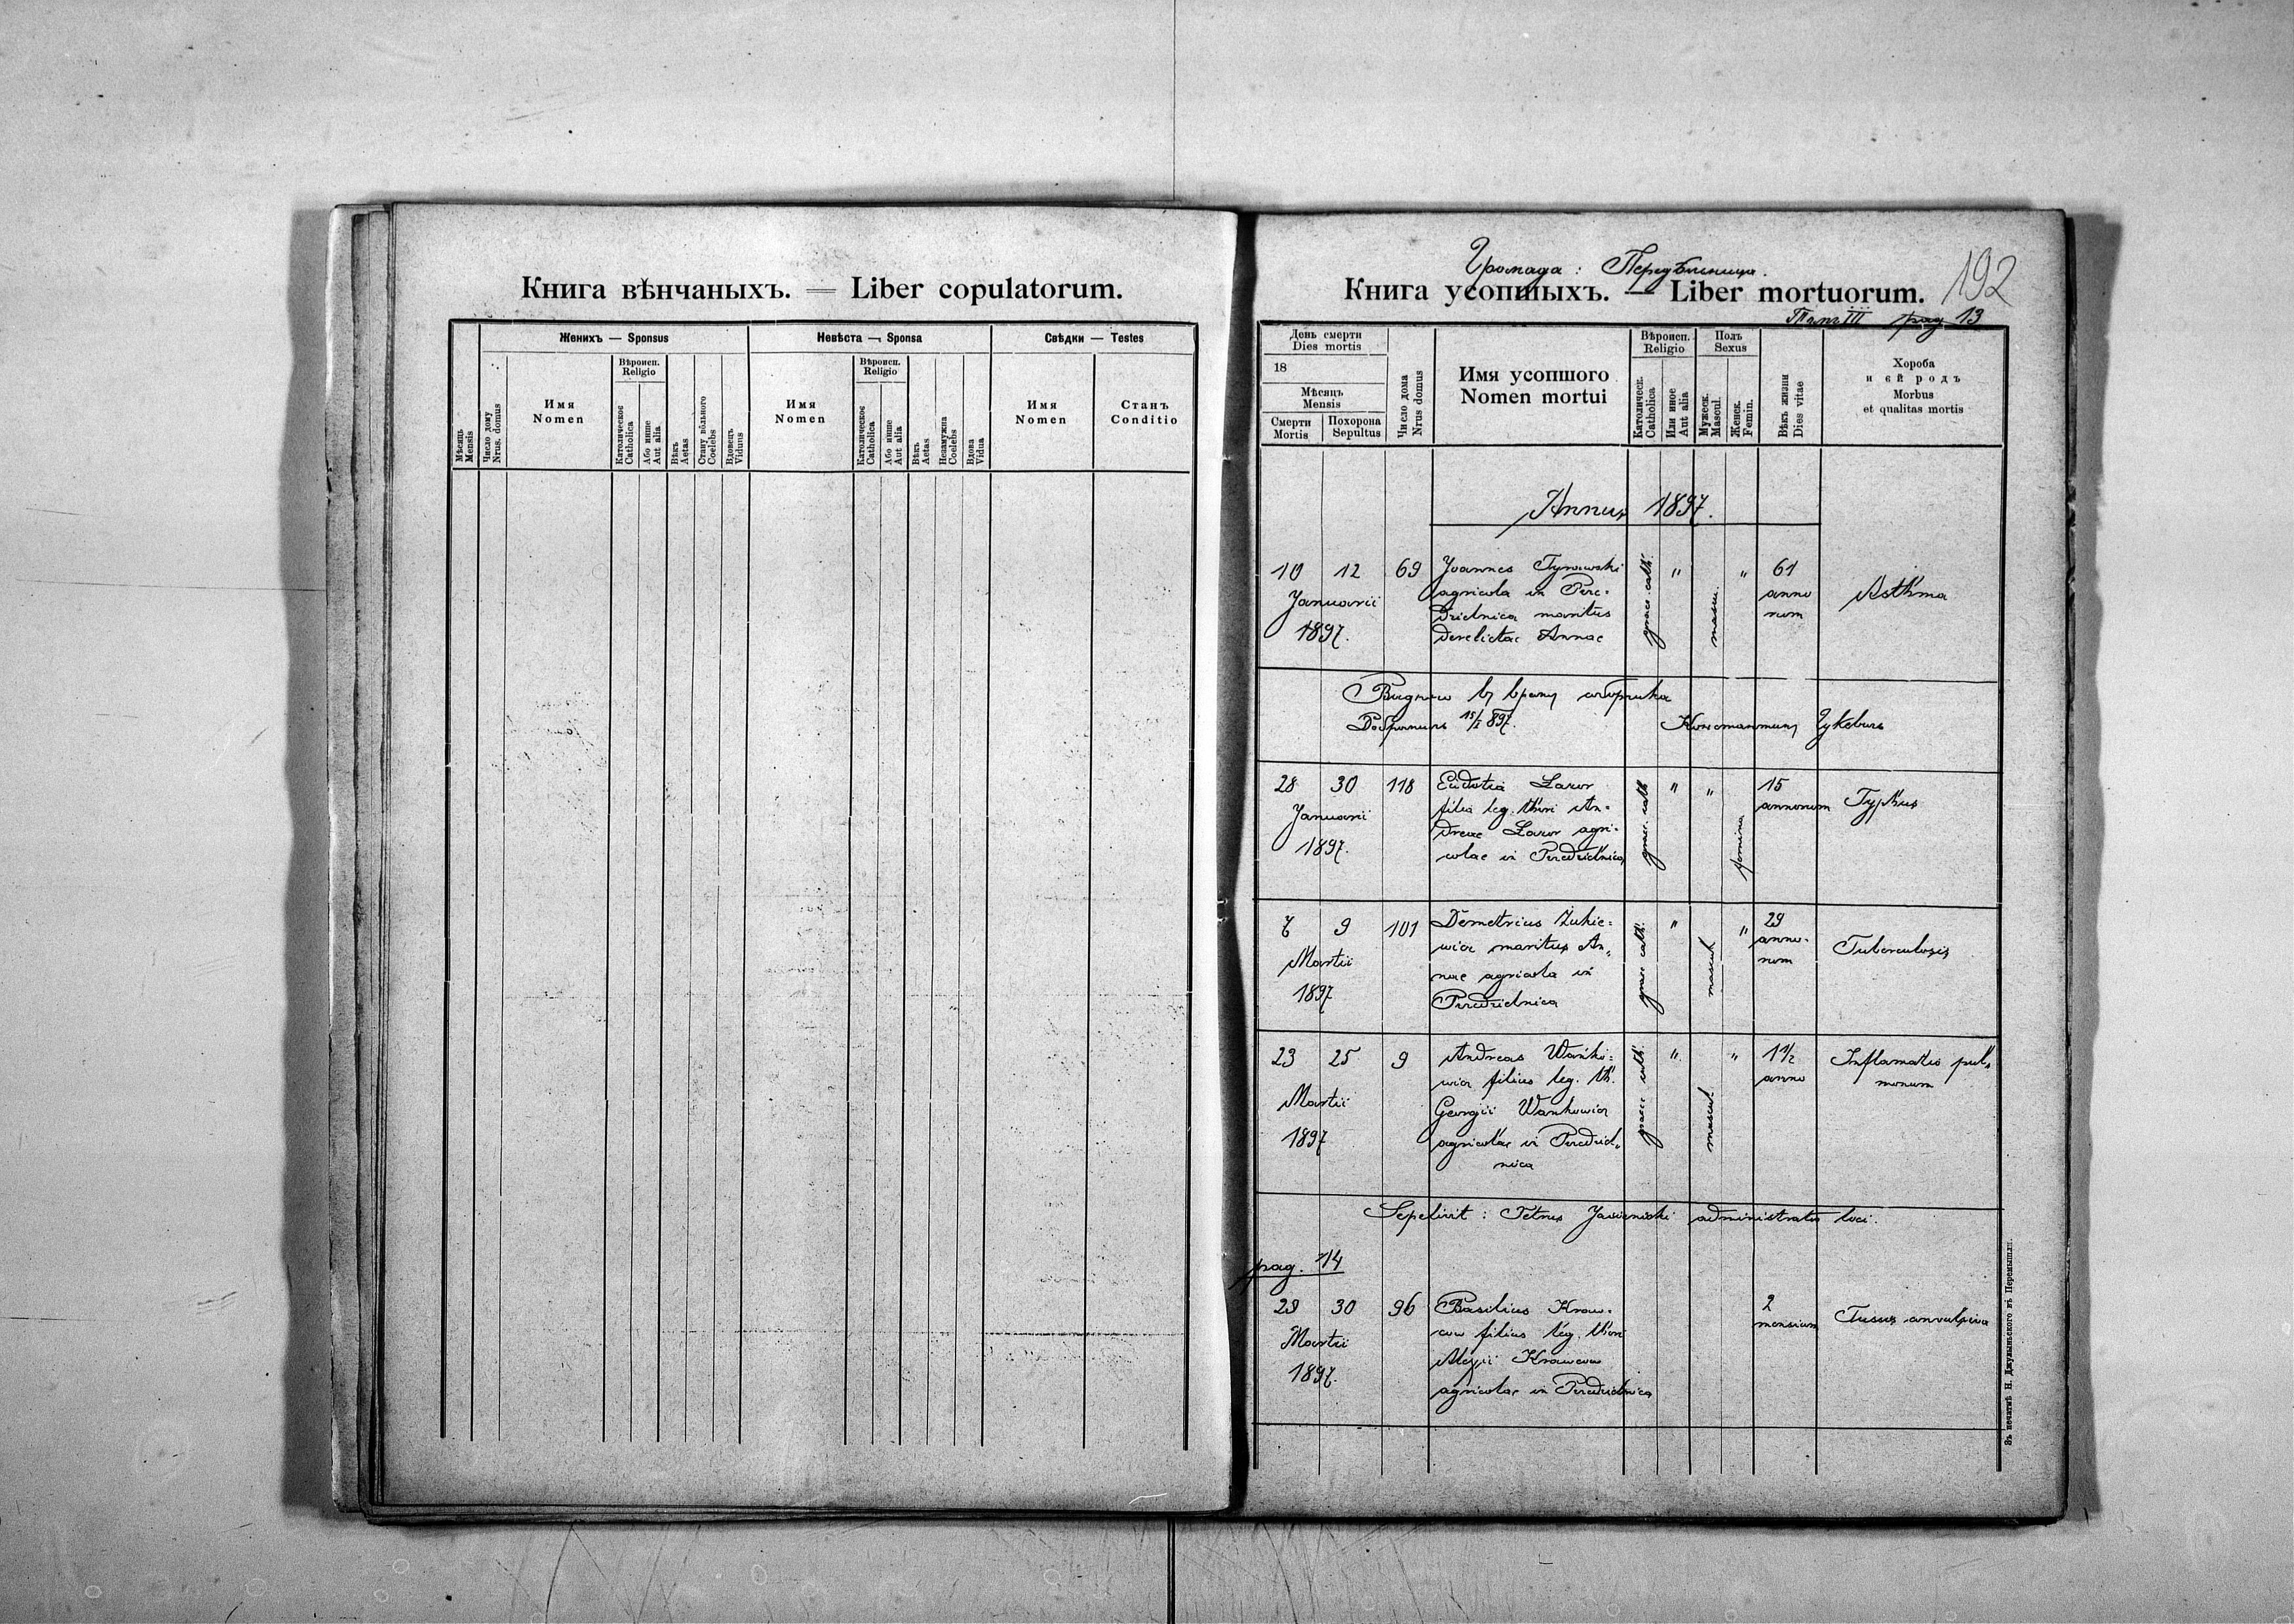 Книга вѣнчаныхъ. — Liber copulatorum.
Женихъ — Sponsus
Невѣста — Sponsa
Свѣдки — Testes
Мѣсяць
Mensis
Число дому
Nrus. domus
Имя
Nomen
Вѣроисп.
Religio
Католическое
Catholica
Або инше
Aut alia
Вѣкъ
Aetas
Стану вôльного
Coelebs
Вдовецъ
Viduus
Имя
Nomen
Вѣроисп.
Religio
Католическое
Catholica
Або инше
Aut alia
Вѣкъ
Aetas
Незамужна
Coelebs
Вдова
Vidua
Имя
Nomen
Станъ
Conditio
Громада: Передѣльница.
192
Книга усопшыхъ. — Liber mortuorum.
Том III pag 13
День смерти
Dies mortis
18
Мѣсяцъ
Mensis
Смерти
Mortis
Похорона
Sepultus
Число дома
Nrus domus
Имя усопшого
Nomen mortui
Вѣроисп.
Religio
Католическ.
Catholica
Или иное
Aut alia
Полъ
Sexus
Мужеск.
Mascul.
Женск.
Femin.
Вѣкъ жизни
Dies vitae
Хороба
и єѣ родъ
Morbus
et qualitas mortis
Annus 1897.
10 12 69 Joannes Tyrawski graec. cath. " mascu. " 61 Asthma
Januarii agricola in Pere- anno
1897. dzielnica maritus num
derelictae Annae
15/I 897. Константинъ
28 30 118 Eudokia Lawor graec. cath " " femina 15 Typhus
Januarii filia leg. thori An- annorum
1897. dreae Lawor agri-
colae in Peredzielnica
7 9 101 Demetrius Żukie- graec cath. " mascul " 29 Tuberculosis
Martii wicz maritus An- anno-
1897 nae agricola in rum
Peredzielnica
23 25 9 Andreas Wańko- graec cath. " mascul. " 1 1/2 Inflamatio pul-
Martii wicz filius leg. th. anno monum
1897 Georgii Wankowicz
agricolae in Peredziel-
nica
Sepelivit: Petrus Jawienicki administrator loci.
pag. 14
29 30 96 Basilius Kraw- 2 Tussis convulsiva
Martii cow filius leg. thori mensium
1897. Alexii Krawcow
agricolae in Peredzielnica
Зъ печатнѣ Н. Джулыньского въ Перемышли.